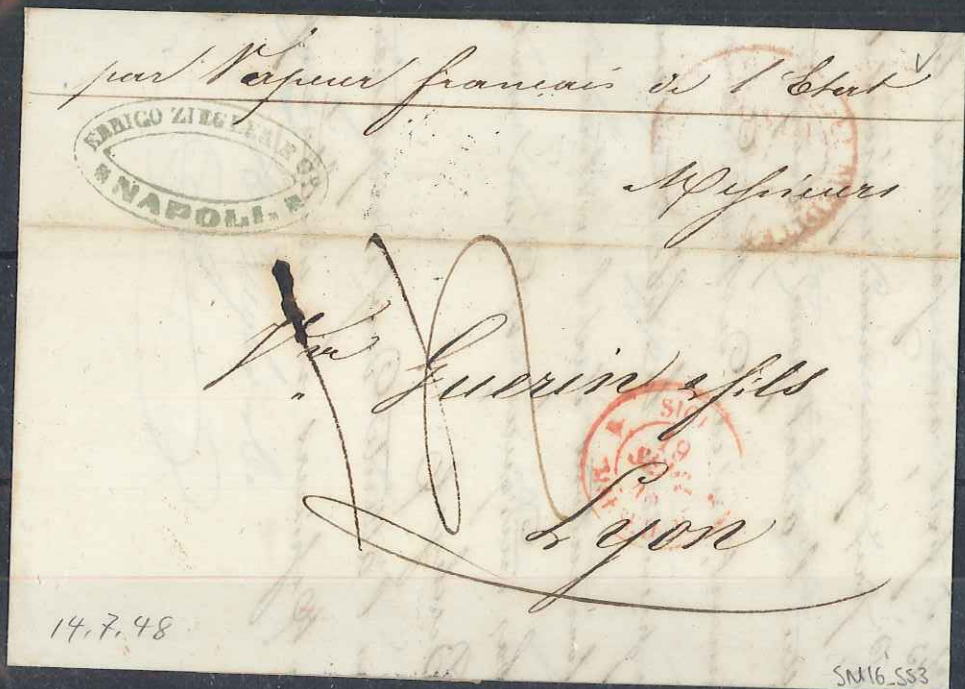 par Vapeur français de l'Etat
ERRICO ZIEGLER E C.
NAPOLI.
Messieurs
Vve Guerin & fils
SICI
19
Lyon
14.7.48
SM16_SS3